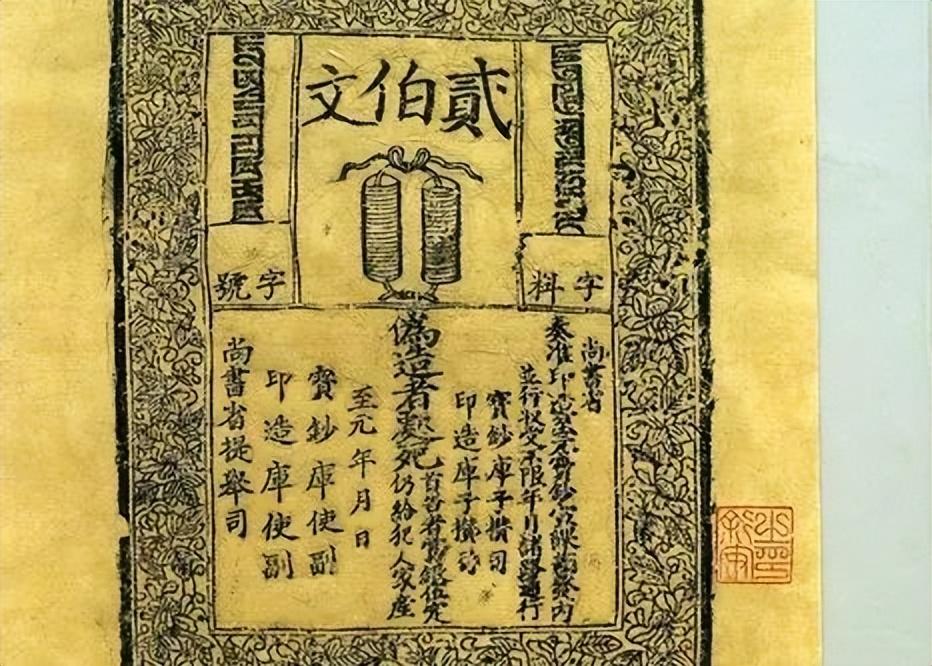 貳伯文
字料
字號
尚書省
奏准印造至元寶鈔宣課內
並行收受不限年月諸路通行
寶鈔庫子攢司
印造庫子攢司
偽造者處死
首告者賞銀伍定
仍給犯人家產
至元年月日
寶鈔庫使副
印造庫使副
尚書省提舉司